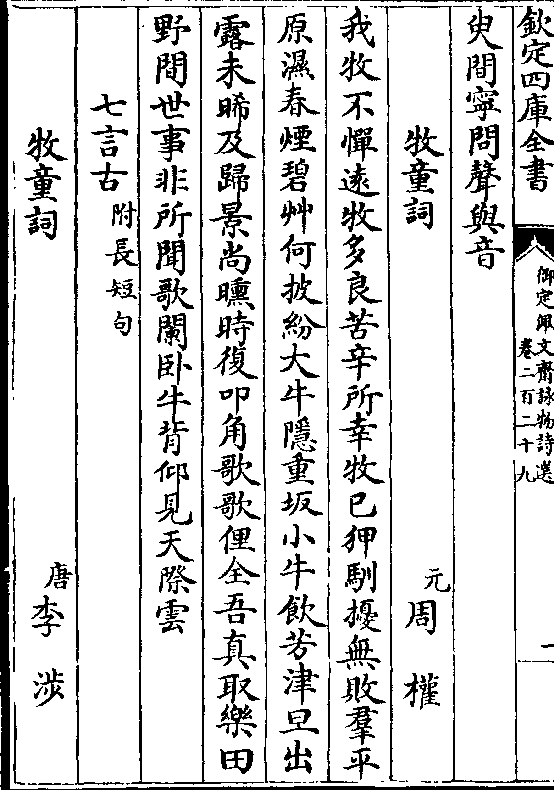 欽定四庫全書
御定佩文齋詠物詩選
卷二百二十九
一
臾間寧問聲與音
牧童詞
元周權
我牧不憚遠牧多良苦辛所幸牧已狎馴擾無敗羣平
原濕春煙碧艸何披紛大牛隱重坂小牛飲芳津旦出
露未晞及歸景尚曛時復叩角歌歌俚全吾真取樂田
野間世事非所聞歌闌卧牛背仰見天際雲
七言古附長短句
牧童詞
唐李涉